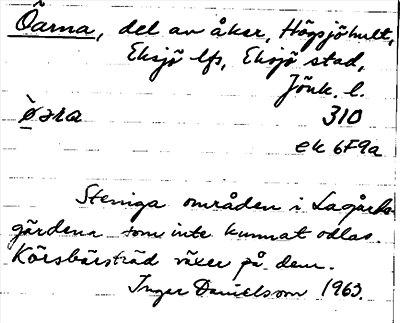 Öarna, del av åker, Högsjöhult,
Eksjö lfs, Eksjö stad,
Jönk. l.
310
ek 6F9a
Steniga områden i Lagårds-
gärdena som inte kunnat odlas.
Körsbärsträd växer på dem.
Inger Danielsson 1963.